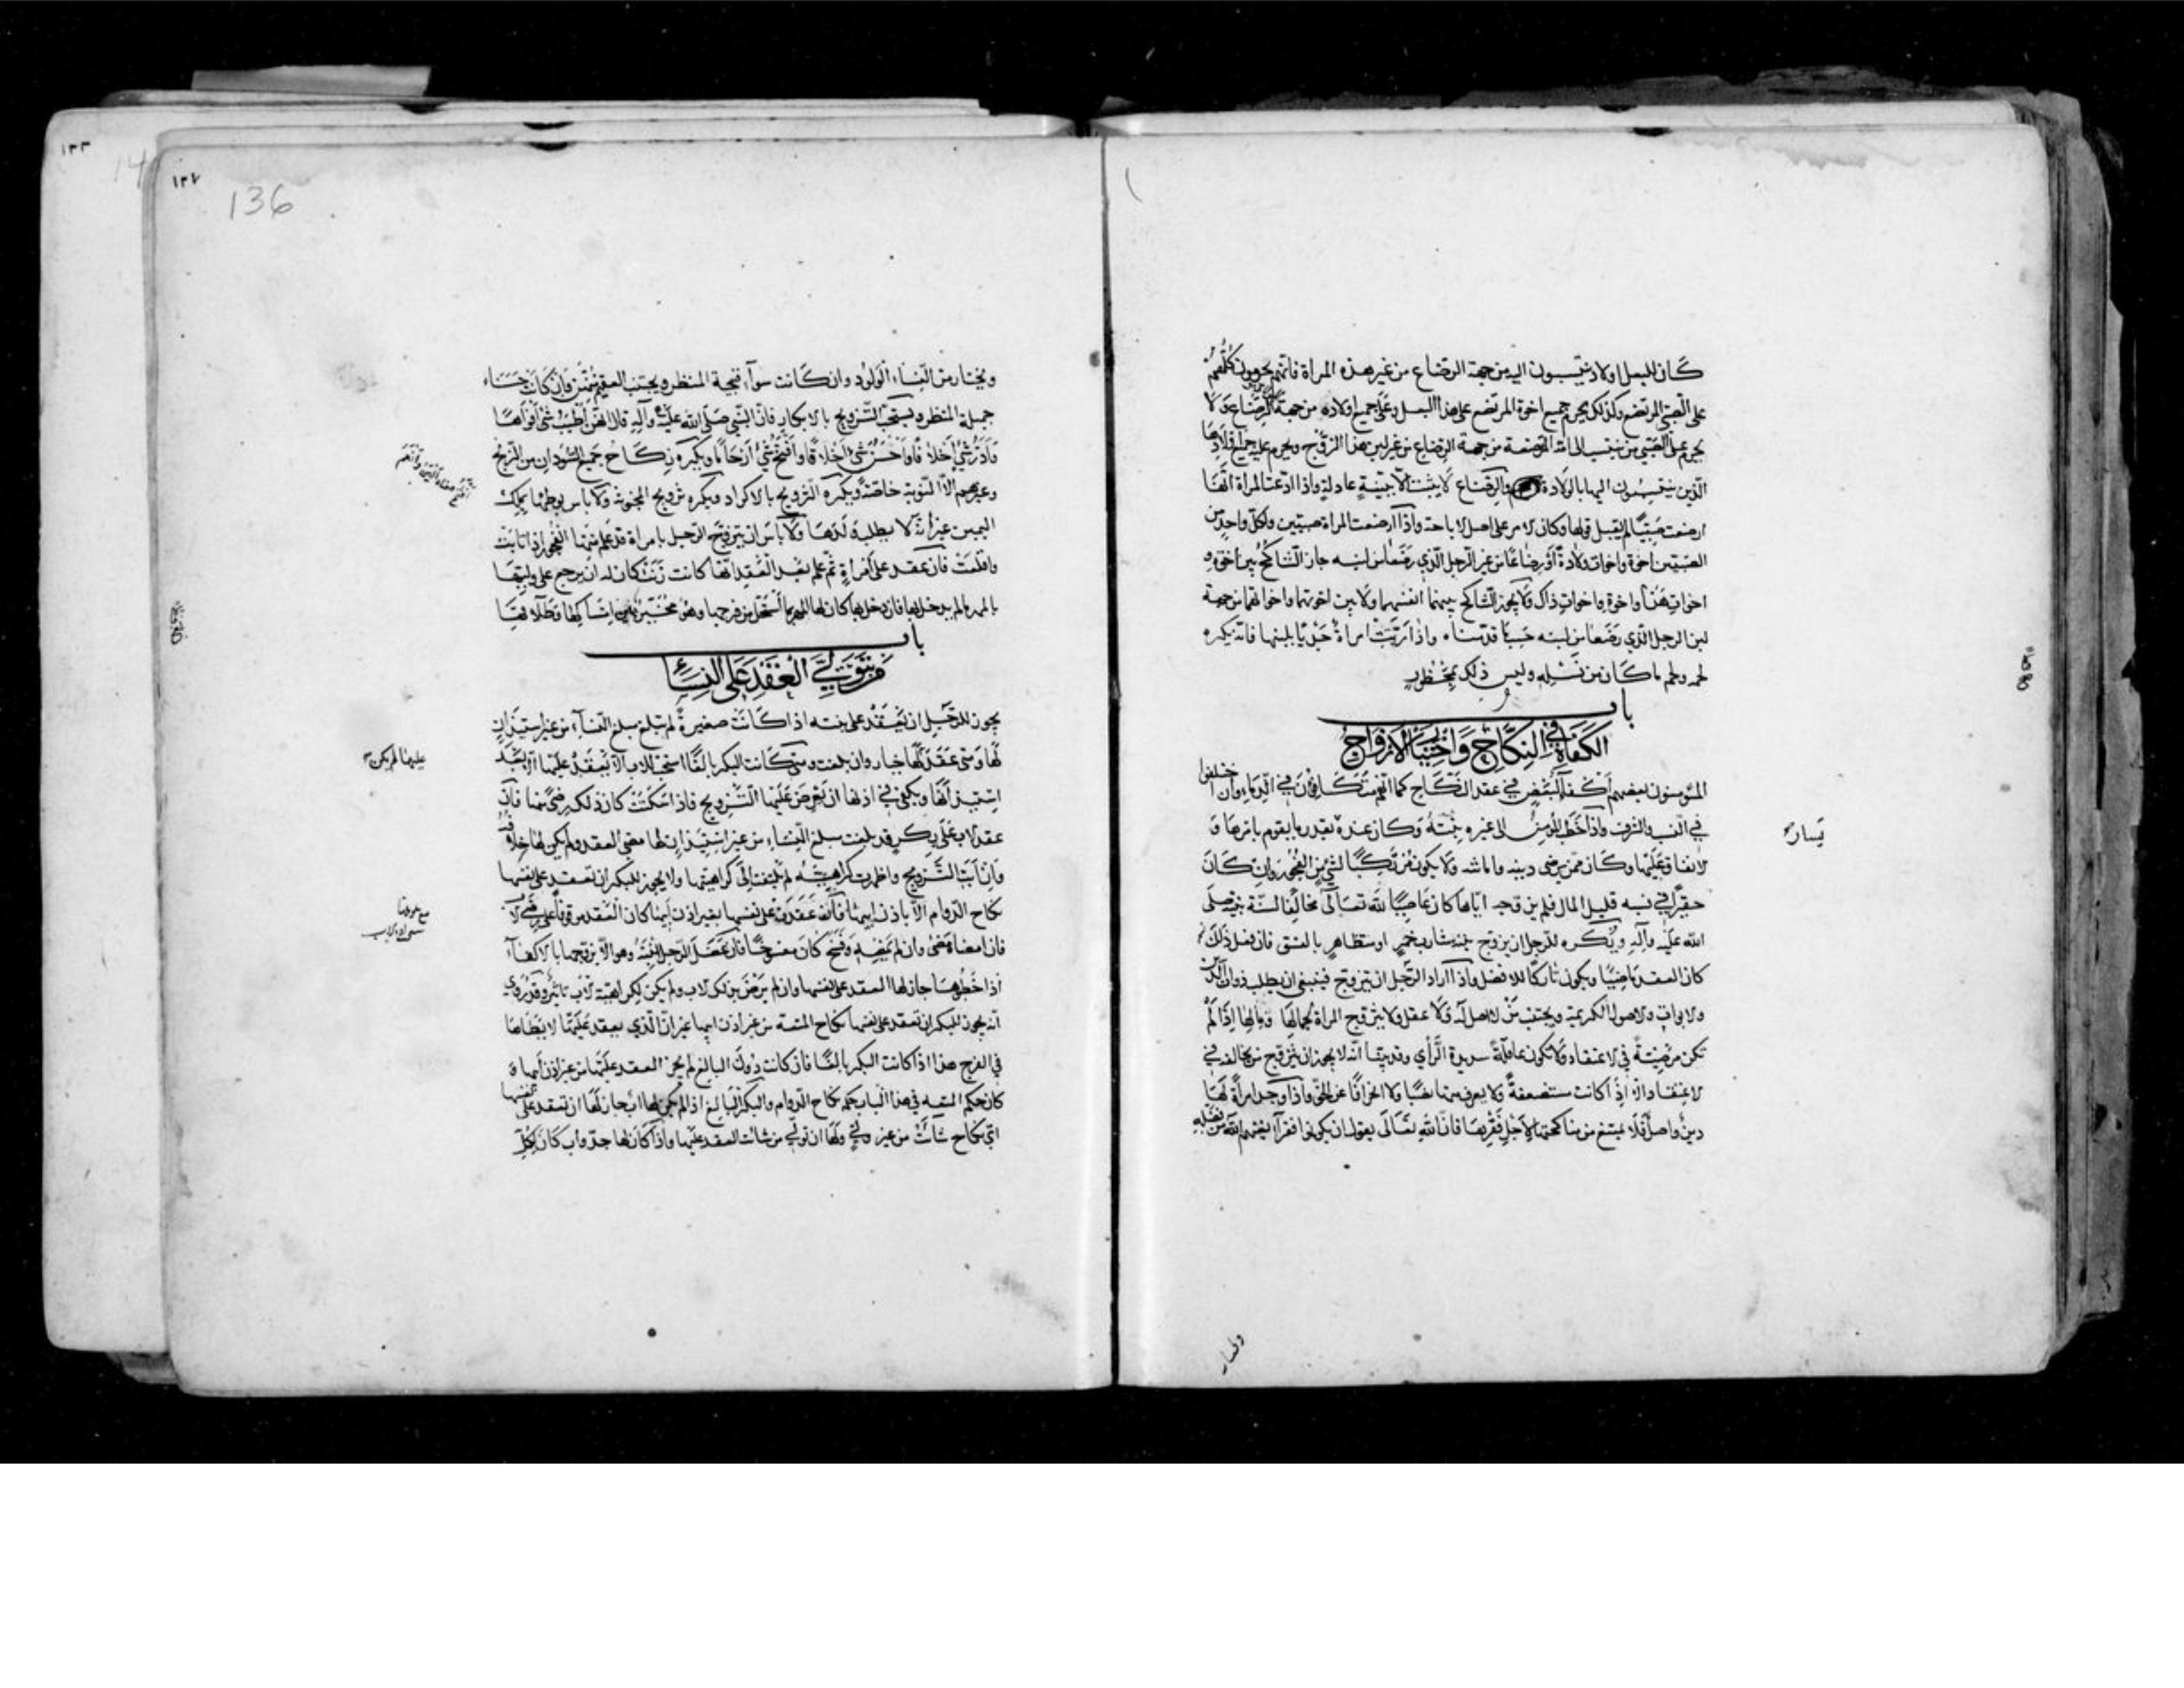 كان للبعل اولاد ينتسبون اليه من جهة الرضاع من غير هذه المراة فانهم يحرمون كلهم
على الصبي المرتضع وكذلك يحرم جميع اخوة المرتضع على هذا البعل وعلى جميع اولاده من جهة الرضاع ولا
يحرم على الصبي من ينتسب الى امه المرضعة من جهة الرضاع من غير لبن هذا الزوج ويحرم عليه جميع اولادها
الذين ينتسبون اليها بالولادة والرضاع لا يثبت الا ببينة عادلة واذا ادعت المراة انها
ارضعت صبيا لم يقبل قولها وكان الامر على اصل الاباحة واذا ارضعت المراة صبيين ولكل واحد من
الصبيين اخوة واخوات ولادة او رضاعا من غير الرجل الذي رضعا من لبنه جاز التناكح بين اخوة
واخوات هذا واخوة واخوات ذاك ولا يجوز التناكح بينهما انفسهما ولا بين اخوتهما واخواتهما من جهة
لبن الرجل الذي رضعا من لبنه حسب ما قدمناه واذا ربت امراة جديا بلبنها فانه يكره
لحمه ولحم ما كان من نسله وليس ذلك بمحظور
باب
الكفاءة في النكاح واختيار الازواج
المؤمنون بعضهم اكفاء لبعض في عقد النكاح كما انهم متكافون في الدماء وان اختلفوا
في النسب والشرف واذا خطب المؤمن الى غيره بنته وكان عنده يقدر ما يقوم بامرها و
يسار
الانفاق عليها وكان ممن يرضى دينه وامانته ولا يكون مرتكبا لشيء من الفجور وان كان
حقيرا في نسبه قليل المال فلم يزوجه اياها كان عاصيا لله تعالى مخالفا لسنة نبيه صلى
الله عليه وآله ويكره للرجل ان يزوج بنته شارب خمر او متظاهر بالفسق فان فعل ذلك
كان العقد ماضيا ويكون تاركا للافضل واذا اراد الرجل ان يتزوج فينبغي ان يطلب ذوات الدين
والابوات والاصول الكريمة ويجتنب من لا اصل له ولا عقل ولا يتزوج المراة لجمالها ومالها اذا لم
تكن مرضية في الاعتقاد ولا تكون عاقلة سديدة الراي وقد بينا انه لا يجوز ان يتزوج من يخالفه في
الاعتقاد الا اذا كانت مستضعفة ولا يعرف منها نصبا ولا انحرافا عن الحق واذا وجد امراة لها
دين واصل فلا يمتنع من مناكحتها لاجل فقرها فان الله تعالى يقول ان يكونوا فقراء يغنهم الله من فضله
١٣٣
١٣٧
136
ويختار من النساء الولود وان كانت سوآء قبيحة المنظر ويجتنب العقيم منهن وان كانت حسناء
جميلة المنظر ويستحب التزويج بالابكار فان النبي صلى الله عليه وآله قال انهن اطيب شيء افواها
وادر شيء اخلافا واحسن شيء اخلاقا وافتح شيء ارحاما ويكره نكاح جميع السودان من الزنج
وغيرهم الا النوبة خاصة ويكره التزويج بالاكراد ويكره تزويج المجنونة ولا باس بوطئها بملك
اليمين غير انه لا يطلب ولدها ولا باس ان يتزوج الرجل بامراة قد علم منها الفجور اذا تابت
واقلعت فان عقد على امراة ثم علم بعد العقد انها كانت زنت كان له ان يرجع على وليها
بالمهر ما لم يدخل بها فان دخل بها كان لها المهر بما استحل من فرجها وهو مخير بين امساكها وطلاقها
باب
من يتولى العقد على النساء
يجوز للرجل ان يعقد على بنته اذا كانت صغيرة لم تبلغ مبلغ النساء من غير استيذان
لها ومتى عقد لها خيار وان بلغت ومتى كانت البكر بالغا استحب للاب الا يعقد عليها الا بعد
عليها لم يكن
استيذانها ويكفي في اذنها ان يعرض عليها التزويج فاذا سكتت كان ذلك رضى منها فان
عقد الاب على بكر قد بلغت مبلغ النساء من غير استيذان لها مضى العقد ولم يكن لها خلافه
وان ابت التزويج واظهرت كراهيته لم يلتفت الى كراهيتها ولا يجوز للبكر ان تعقد على نفسها
نكاح الدوام الا باذن ابيها فان عقدت على نفسها بغير اذن ابيها كان العقد موقوفا على رضى الاب
فان امضاه مضى وان لم يمضه وفسخ كان مفسوخا فان عضل الرجل بنته وهو الا يزوجها بالاكفاء
اذا خطبوها جاز لها العقد على نفسها وان لم يرض بذلك الاب ولم يكن لكراهية الاب تاثير وقد روي
انه يجوز للبكر ان تعقد على نفسها نكاح المتعة من غير اذن ابيها غير ان الذي يعقد عليها لا يطاها
في الفرج هذا اذا كانت البكر بالغا فان كانت دون البالغ لم يجز العقد عليها من غير اذن ابيها و
كان حكم المتعة في هذا الباب حكم نكاح الدوام والبكر البالغ اذا لم يكن لها اب جاز لها ان تعقد على نفسها
اي نكاح شاءت من غير ولي ولها ان تولي من شاءت العقد عليها واذا كان لها جد واب كان لكل